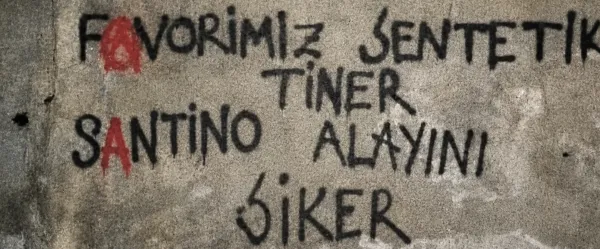 FAVORiMiZ SENTETiK
TiNER
SANTiNO ALAYINI
SiKER